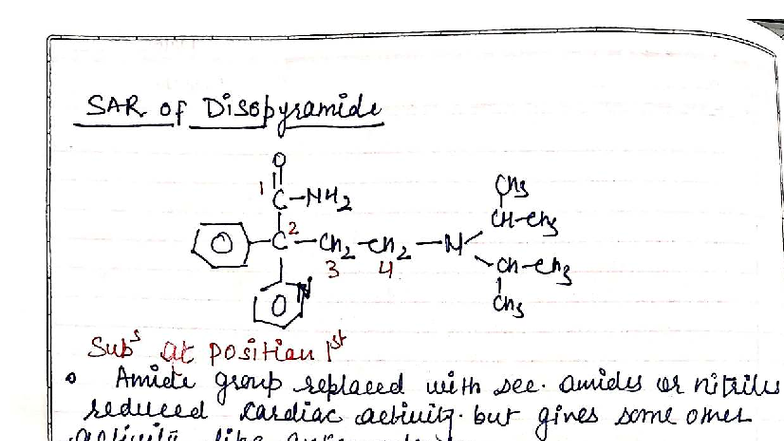 SAR of Disopyramide
O
1 C-NH2
CH3
CH-CH3
C 2 -CH2-CH2-N
3 4
CH-CH3
N
CH3
Subs at position 1st
Amide group replaced with sec. amides or nitriles
reduced cardiac activity. but gives some other
activity like